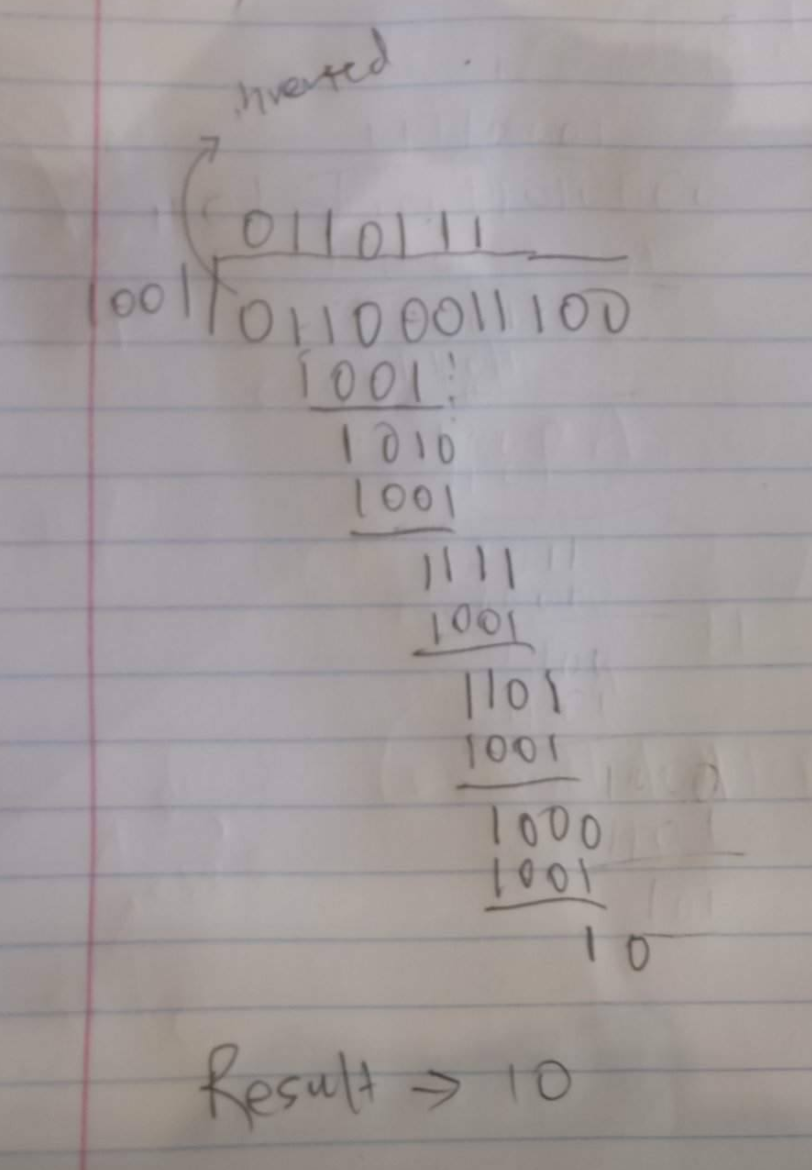 inverted
0110111
1001 01100011100
1001
1010
1001
1111
1001
1101
1001
1000
1001
10
Result → 10